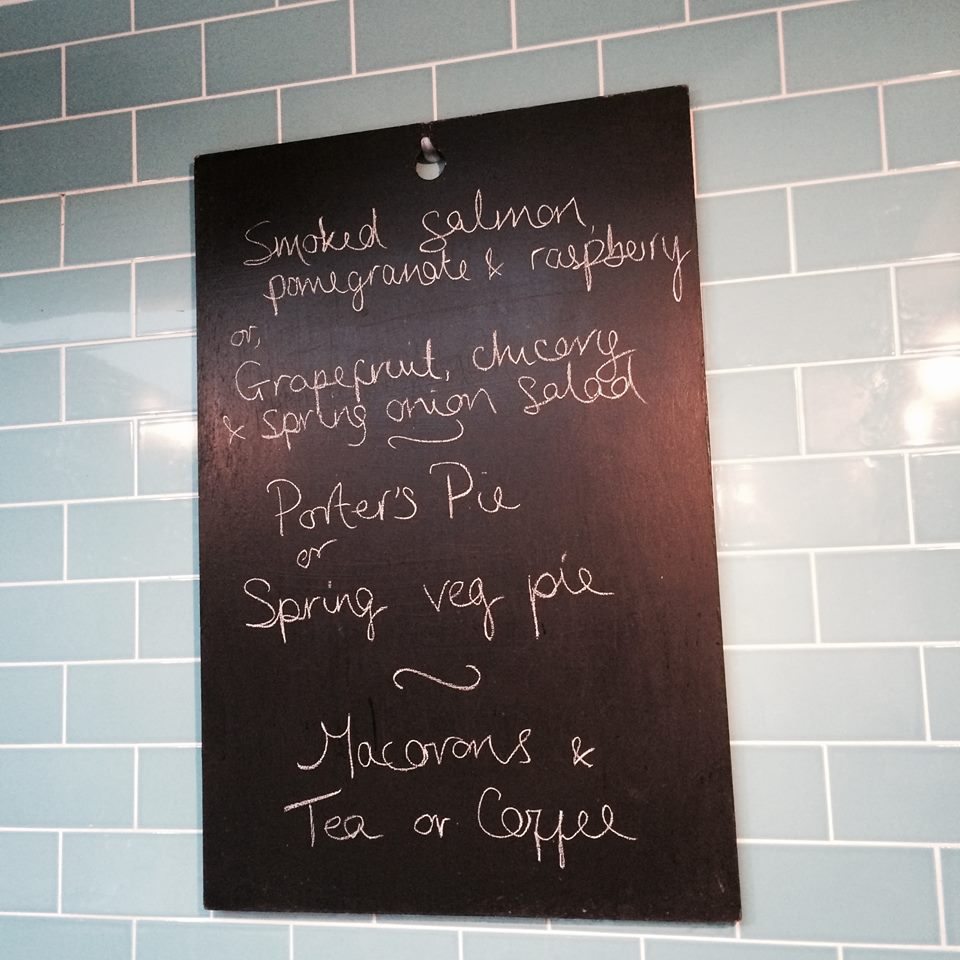 Smoked salmon,
pomegranate & raspberry
or,
Grapefruit, chicory
& spring onion salad
Porter's Pie
or
Spring veg pie
Macarons &
Tea or Coffee